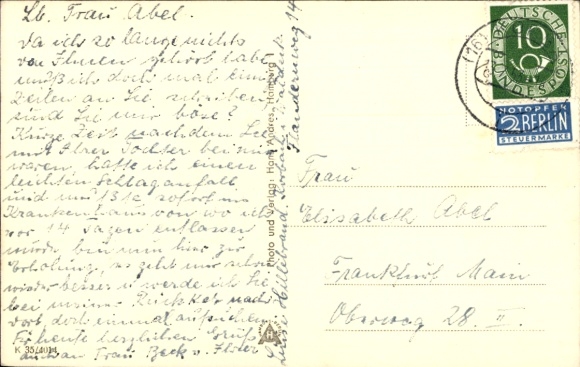 Lb. Frau Abel.
Da ich so lange nichts
von Ihnen gehört habe
muß ich doch mal ein
Zeilen an Sie schreiben
sind Sie mir böse?
Kurze Zeit nachdem Sie
mit Ihrer Tochter bei mir
waren, hatte ich einen
leichten Schlaganfall
und mußte sofort ins
Krankenhaus von wo ich
vor 14 Tagen entlassen
wurde bin nun hier zur
Erholung, es geht mir schon
wieder besser u werde ich Sie
bei meiner Rückkehr nach
dort, doch einmal aufsuchen
Für heute herzlichen Gruß
auch an Frau Beck v. Ihrer
Luise Hillebrand, Korbach, Waldeck
Flandernweg 14
Photo und Verlag: Hans Andres, Hamburg
K 35/4014
DEUTSCHE BUNDESPOST
10
NOTOPFER
2 BERLIN
STEUERMARKE
(16)
Frau
Elisabeth Abel
Frankfurt Main
Oberweg 28 II.